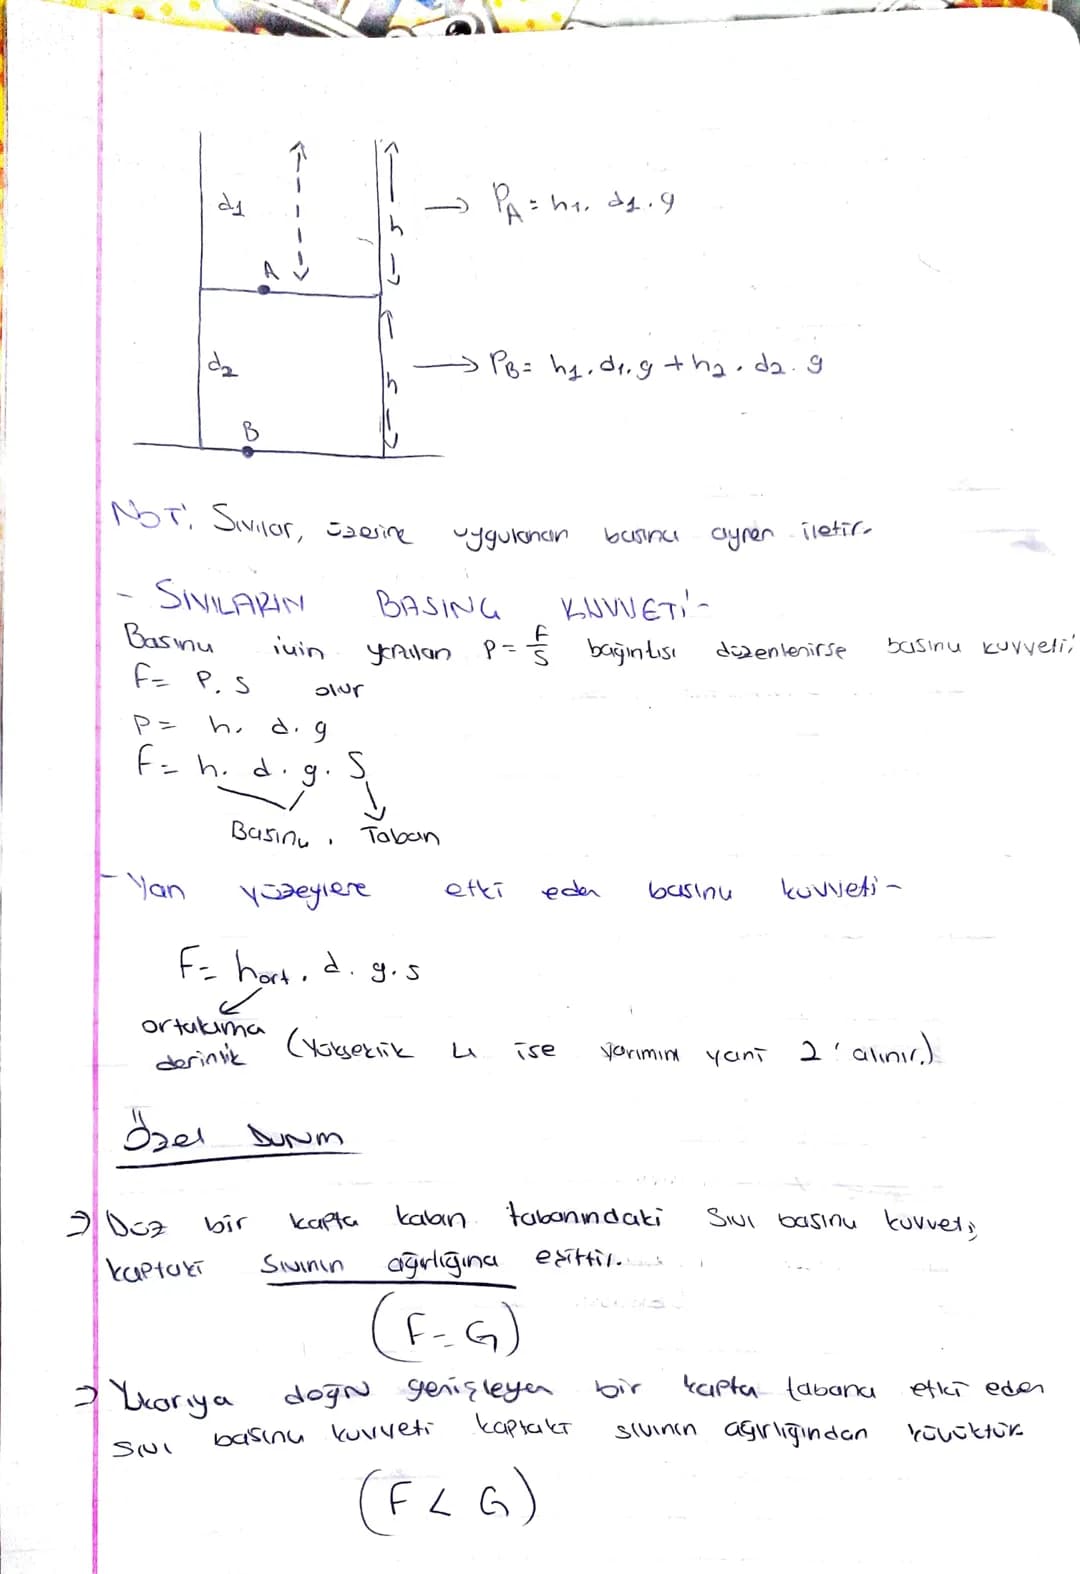 d1
h
→ PA = h1. d1. g
A
d2
h
→ PB = h1. d1. g + h2. d2. g
B
NOT: Sıvılar, üzerine uygulanan basıncı aynen iletir.
- SIVILARIN BASINÇ KUVVETİ -
Basınç için yazılan P = F/S bağıntısı düzenlenirse basınç kuvveti;
F = P. S olur
P = h. d. g
F = h. d. g. S
Basınç. Taban
- Yan yüzeylere etki eden basınç kuvveti -
F = hort. d. g. s
ortalama
derinlik (Yükseklik 4 ise yarımını yani 2' alınır.)
Özel Durum
⇒ Düz bir kapta kabın tabanındaki sıvı basınç kuvveti,
kaptaki sıvının ağırlığına eşittir.
(F = G)
⇒ Yukarıya doğru genişleyen bir kapta tabana etki eden
sıvı basınç kuvveti kaptaki sıvının ağırlığından küçüktür
(F < G)